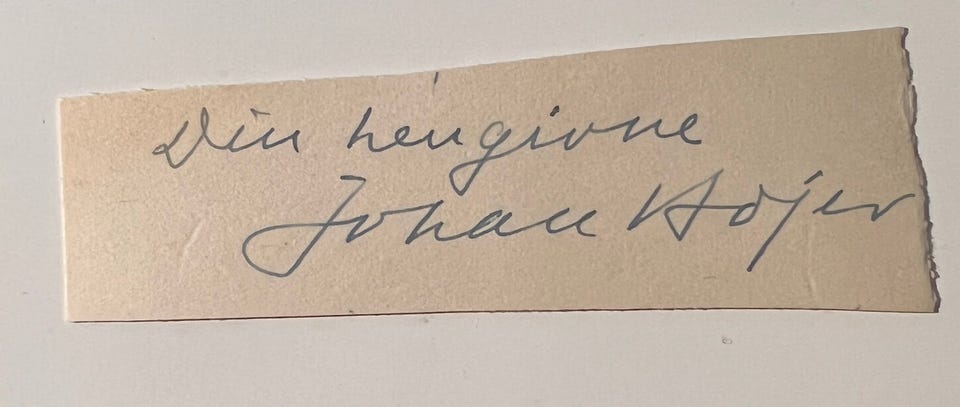 Din hengivne
Johan Bojer